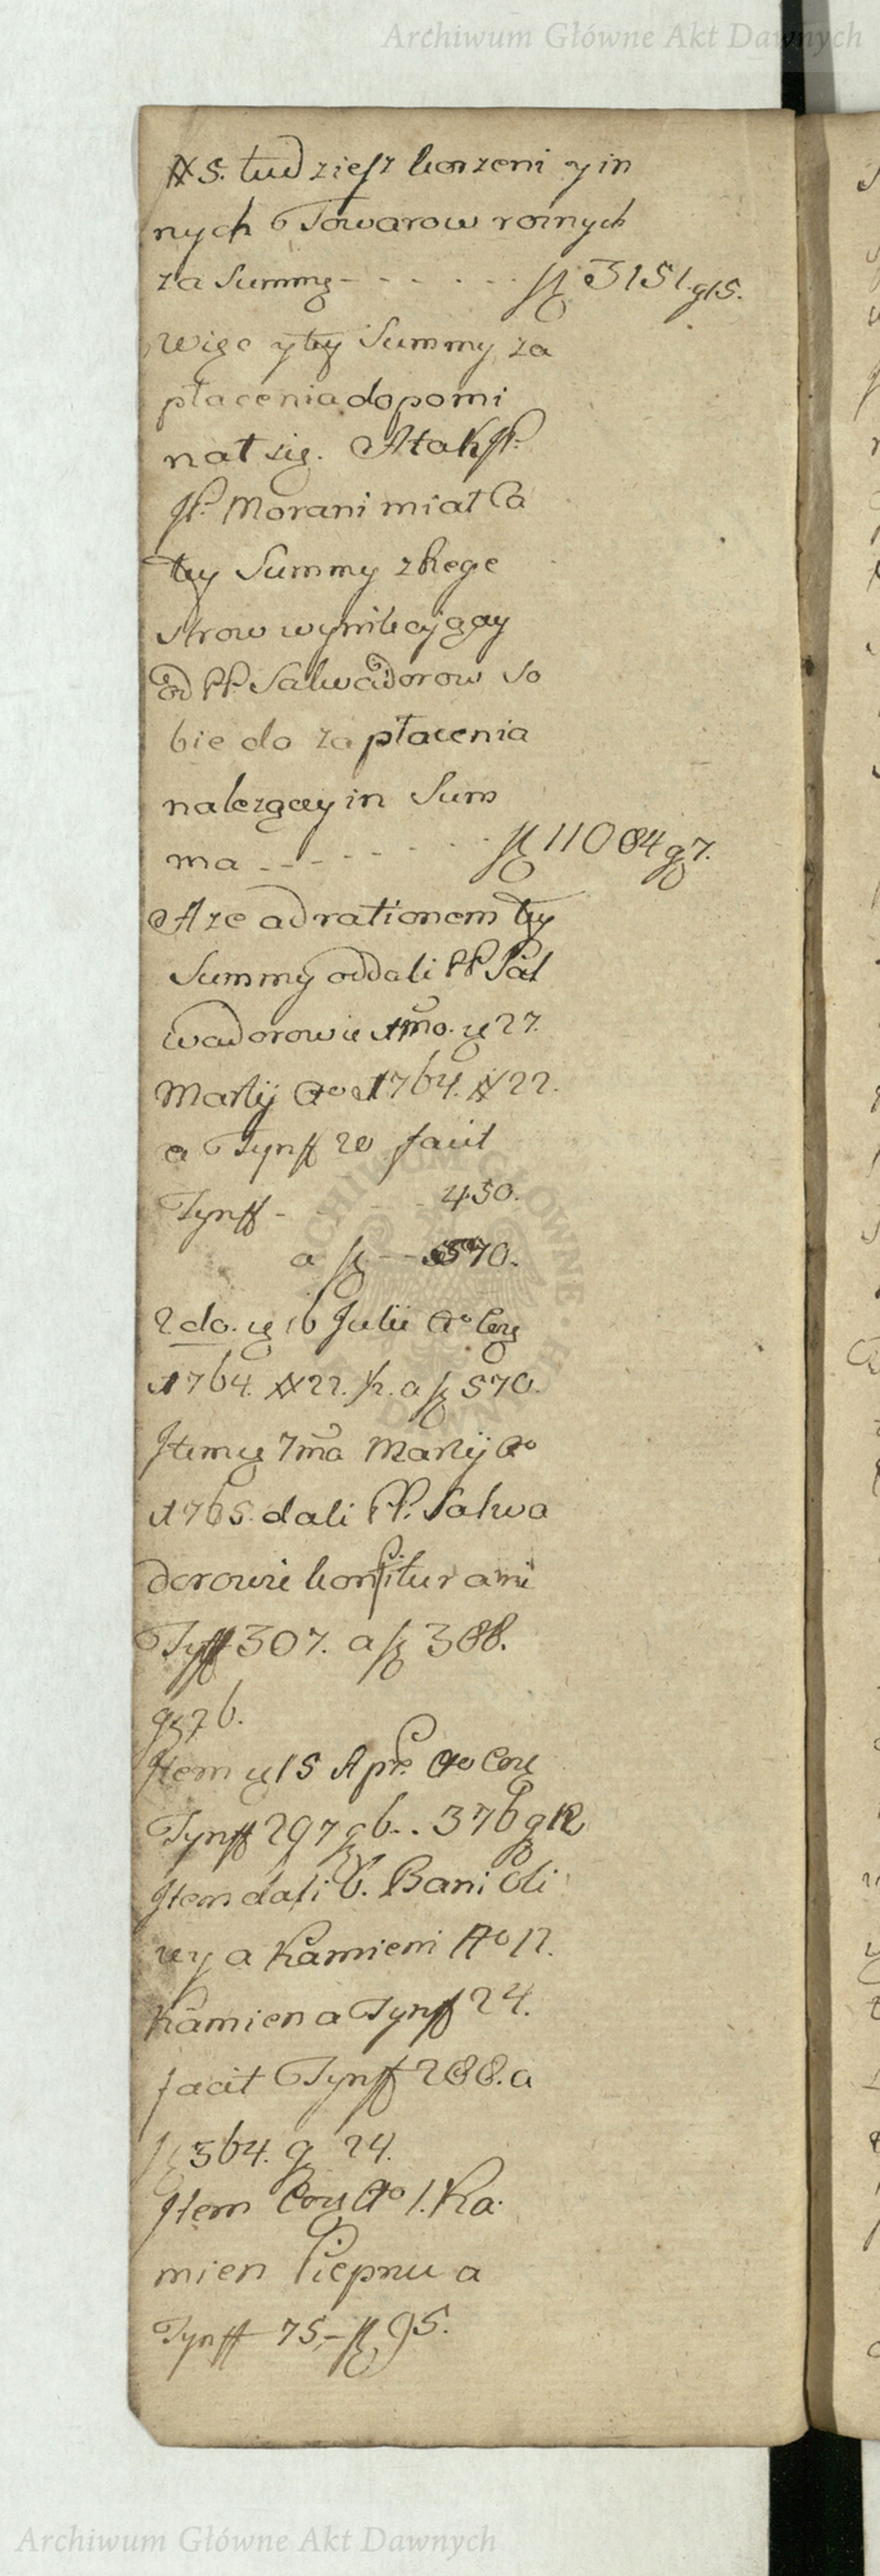 Archiwum Główne Akt Dawnych
# 5. tudziesz korzeni y in
nych Towarow roznych
za Summę - - - - - - fl 3151. g 15.
Więc y tey Summy za
płacenia dopomi
nał się. A tak JP.
JP. Morani miał Ca
tey Summy z Rege
strow wynikaiącey
od PP. Salwadorow so
bie do zapłacenia
nalezącey in Sum
ma - - - - - - fl 11084 g 7.
A ze ad rationem tey
Summy oddali PP Sal
wadorowie 1mo. 27.
Martij Ao 1764. # 22.
a Tynff 20 facit
Tynff - - - - 450.
a fl - - 570.
2do. 16 Julii Ao
1764. # 22. ½. a fl 570.
Item 7ma Martij Ao
1765. dali PP. Salwa
dorowie konfiturami
Tyff 307. a fl 388.
g 26.
Item 15 Apr. Ao
Tynff 297 g 6.. 376 g 12
Item dali 6. Bani Oli
wy a Kamieni No 12.
Kamien a Tynff 24.
facit Tynff 288. a
fl 364. g 24.
Item Ao 1. Ka
mien Piepriu a
Tynff 75,- fl 95.
Archiwum Główne Akt Dawnych